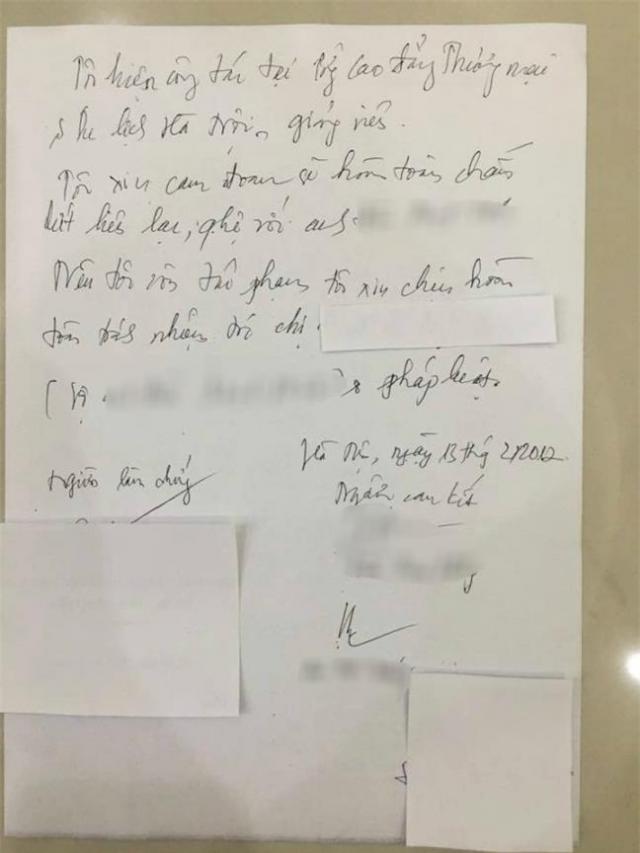 Tôi hiện công tác tại Trg Cao đẳng Thương mại
& Du lịch Hà Nội, giảng viên.
Tôi xin cam đoan sẽ hoàn toàn chấm
dứt liên lạc, qhệ với anh
Nếu tôi còn tái phạm tôi xin chịu hoàn
toàn trách nhiệm trc chị
(Vợ & pháp luật.
Hà Nội, ngày 13 thg 2/2012
Người làm chứng
Người cam kết